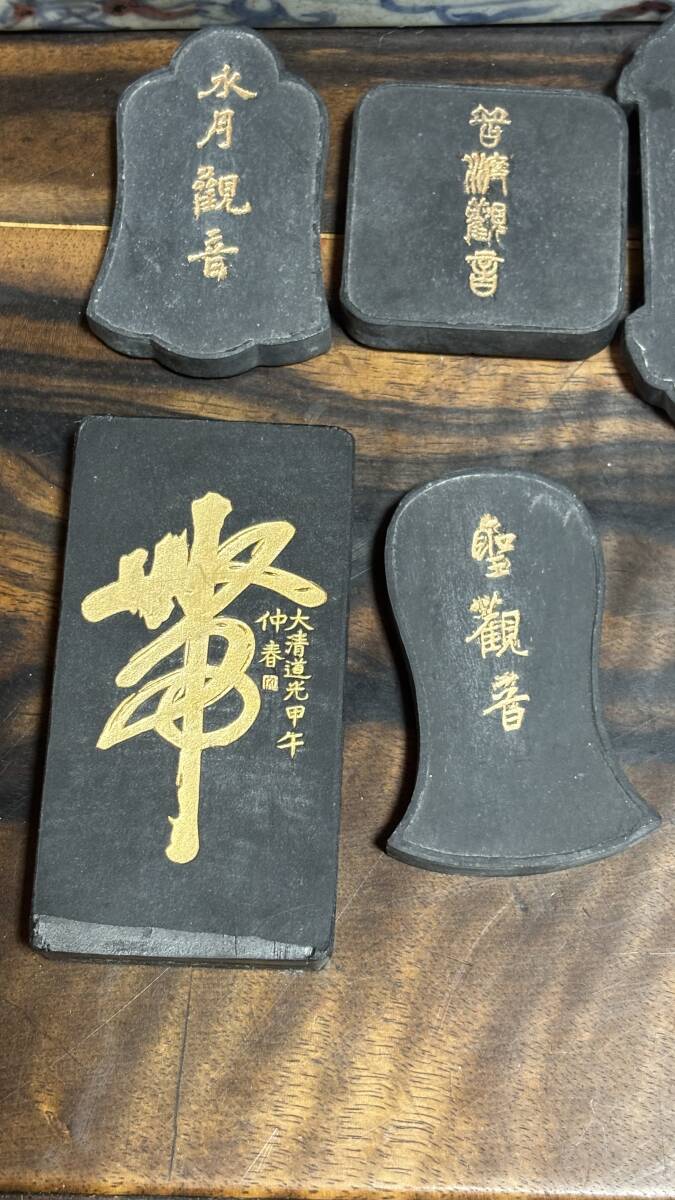 水月觀音
普濟觀音
大清道光甲午
仲春
聖觀音